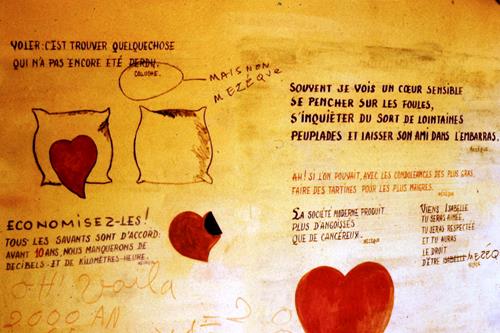 VOLER: C'EST TROUVER QUELQUECHOSE
QUI N'A PAS ENCORE ETÉ PERDU.
COLUCHE.
MAIS NON
MEZÉQUE
SOUVENT JE VOIS UN CŒUR SENSIBLE
SE PENCHER SUR LES FOULES,
S'INQUIÉTER DU SORT DE LOINTAINES
PEUPLADES ET LAISSER SON AMI DANS L'EMBARRAS.
AH! SI L'ON POUVAIT, AVEC LES CONDOLEANCES DES PLUS GRAS,
FAIRE DES TARTINES POUR LES PLUS MAIGRES.
ECONOMISEZ-LES!
TOUS LES SAVANTS SONT D'ACCORD:
AVANT 10 ANS, NOUS MANQUERONS DE
DECIBELS ET DE KILOMÈTRES-HEURE.
LA SOCIÉTÉ MODERNE PRODUIT
PLUS D'ANGOISSÉS
QUE DE CANCÉREUX.
VIENS ISABELLE
TU SERAS AIMÉE,
TU SERAS RESPECTÉE
ET TU AURAS
LE DROIT
D'ÊTRE ISABELLE MEZÉQ
OH! Voilà
2000 AN